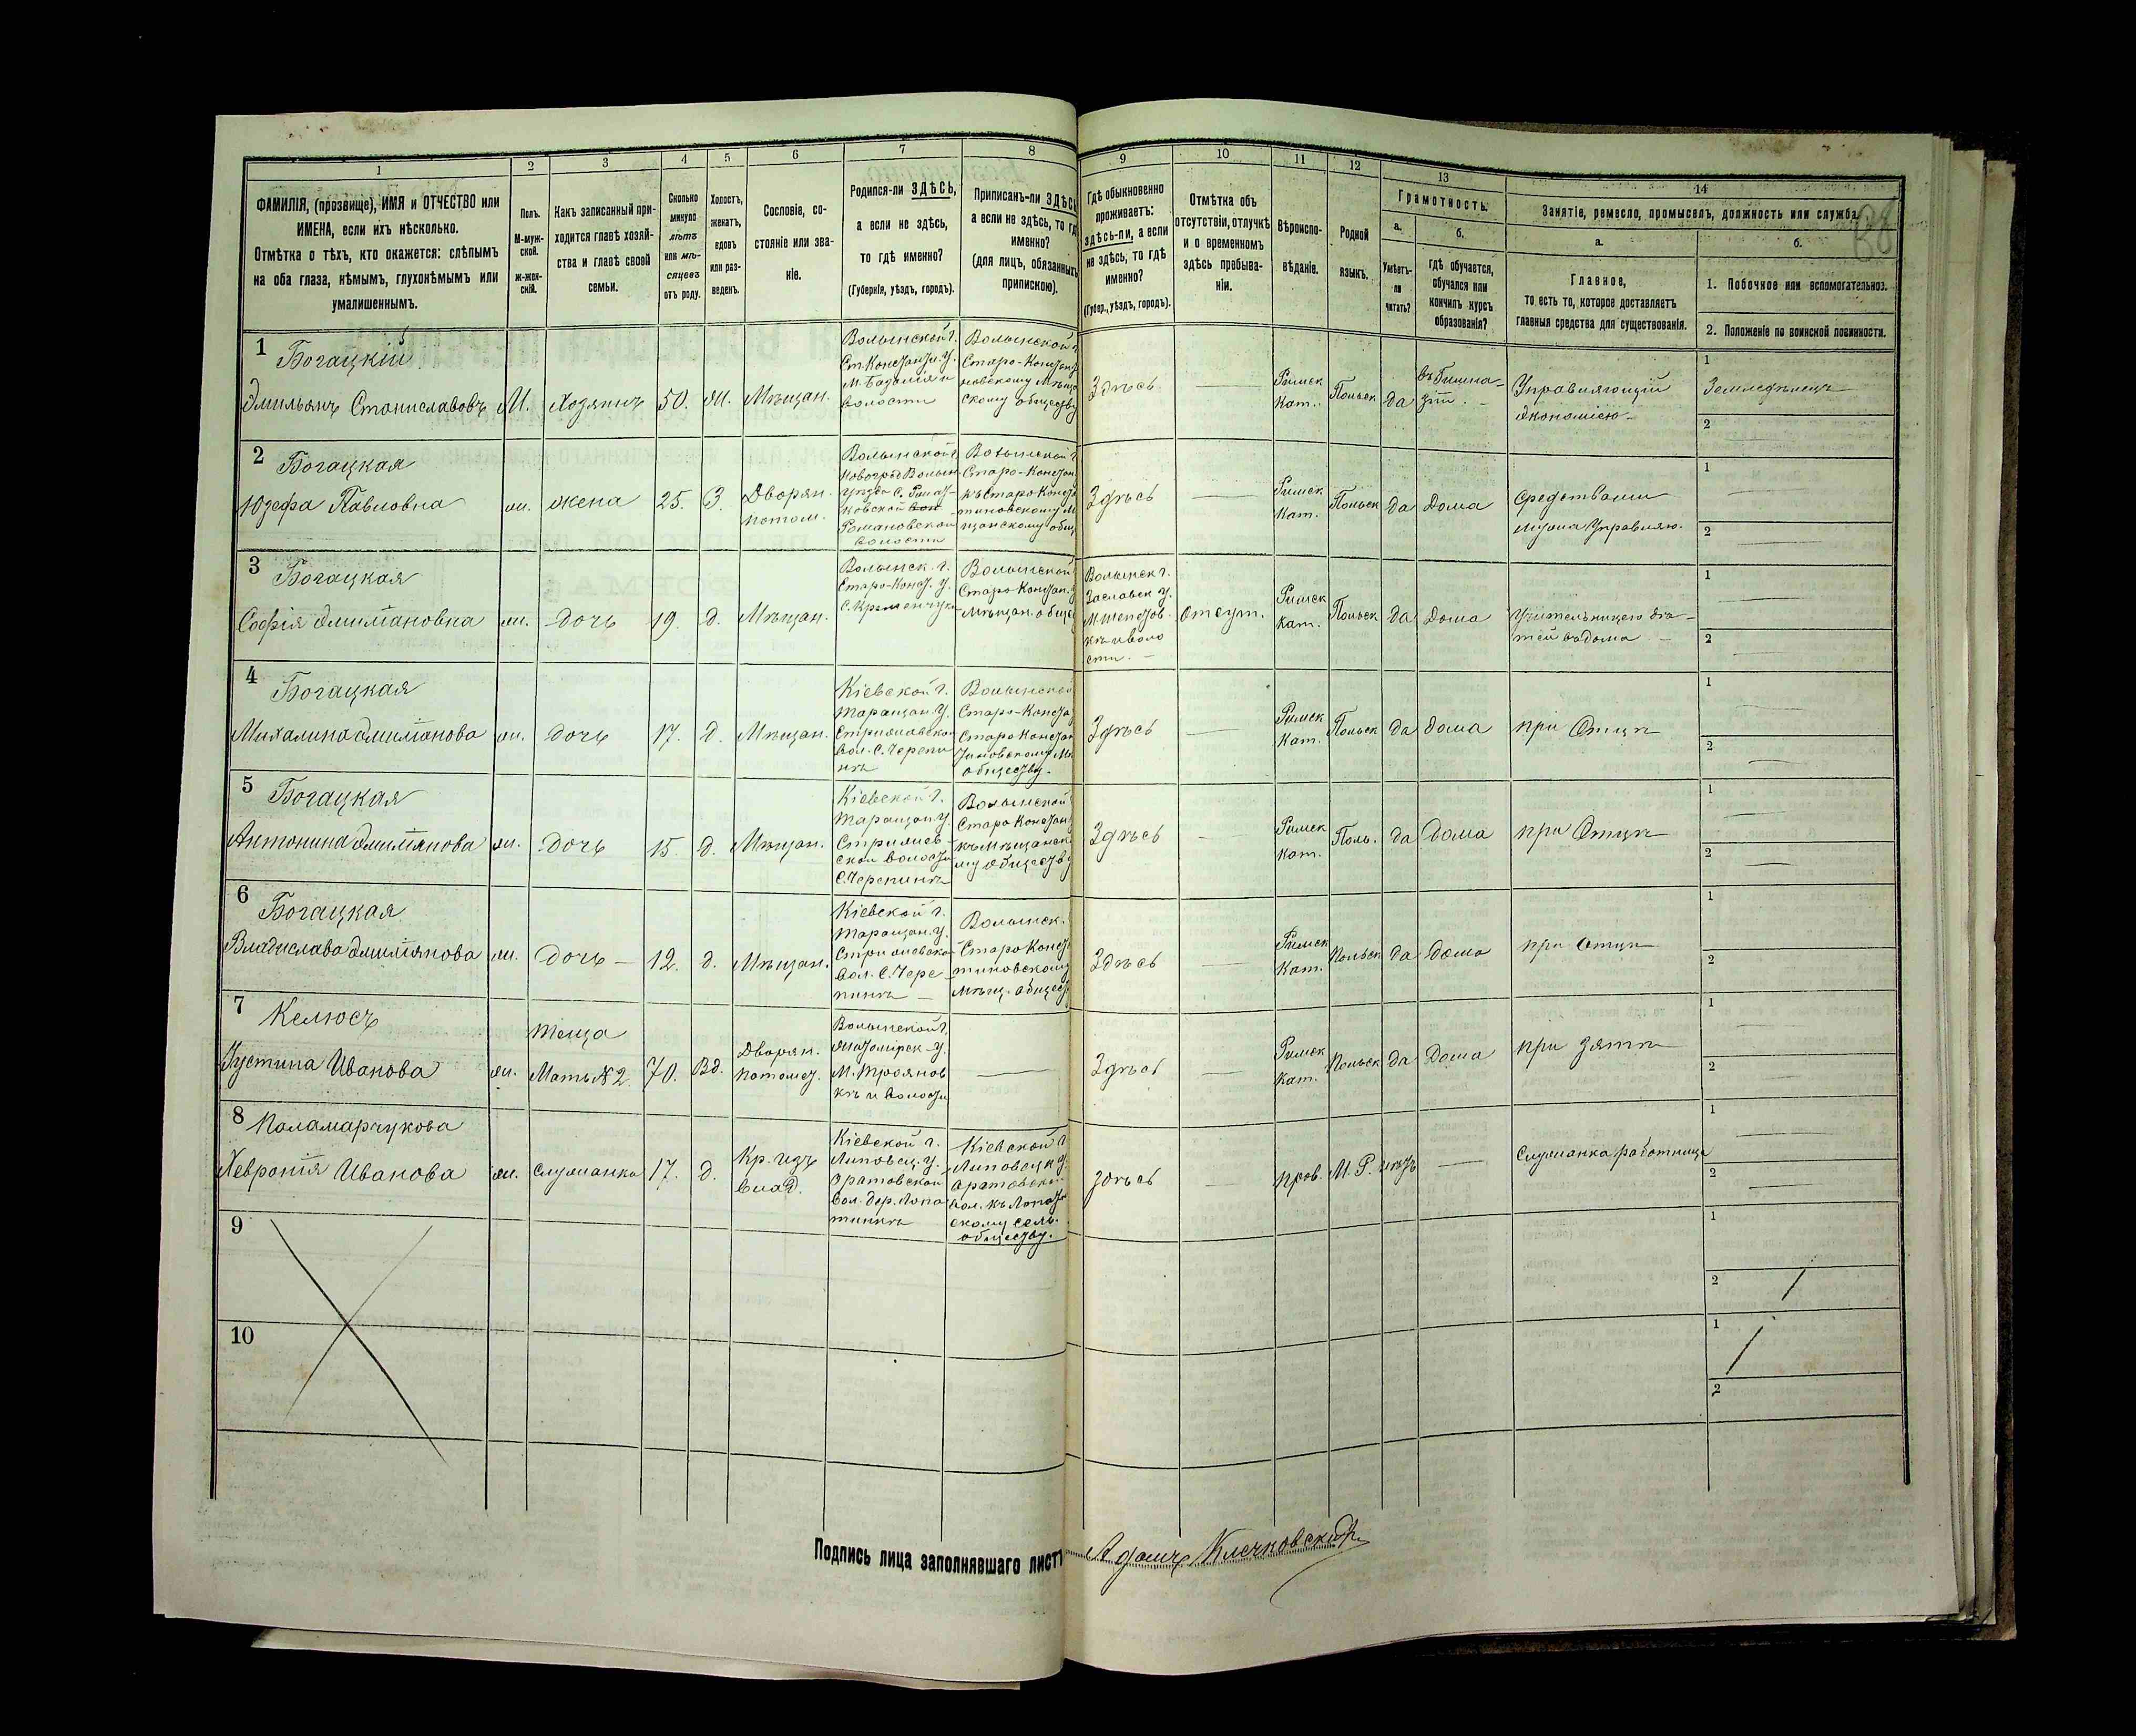 1
2
3
4
5
6
7
8
9
10
11
12
13
14
ФАМИЛІЯ, (прозвище), ИМЯ и ОТЧЕСТВО или
ИМЕНА, если ихъ нѣсколько.
Отмѣтка о тѣхъ, кто окажется: слѣпымъ
на оба глаза, нѣмымъ, глухонѣмымъ или
умалишеннымъ.
Полъ.
М-муж-
ской.
ж-жен-
скій.
Какъ записанный при-
ходится главѣ хозяй-
ства и главѣ своей
семьи.
Сколько
минуло
лѣтъ
или мѣ-
сяцевъ
отъ роду.
Холостъ,
женатъ,
вдовъ
или раз-
веденъ.
Сословіе, со-
стояніе или зва-
ніе.
Родился-ли ЗДѢСЬ,
а если не здѣсь,
то гдѣ именно?
(Губернія, уѣздъ, городъ).
Приписанъ-ли ЗДѢСЬ
а если не здѣсь, то гдѣ
именно?
(для лицъ, обязанныхъ
припискою).
Гдѣ обыкновенно
проживаетъ:
здѣсь-ли, а если
не здѣсь, то гдѣ
именно?
(Губер., уѣздъ, городъ).
Отмѣтка объ
отсутствіи, отлучкѣ
и о временномъ
здѣсь пребыва-
ніи.
Вѣроиспо-
вѣданіе.
Родной
языкъ.
Грамотность.
а.
Умѣетъ-
ли
читать?
б.
гдѣ обучается,
обучался или
кончилъ курсъ
образованія?
Занятіе, ремесло, промыселъ, должность или служба.
а.
Главное,
то есть то, которое доставляетъ
главныя средства для существованія.
б.
1. Побочное или вспомогательное.
2. Положеніе по воинской повинности.
1
Богацкій
Эмильянъ Станиславовъ
М.
Хозяинъ
50.
Ж.
Мѣщан.
Волынской г.
Ст. Констант. у.
волости
Волынской г.
Старо-Констант
новскому Мѣща
скому обществу
Здѣсь
Римск
Кат.
Польск
да
въ Гимна-
зіи
Управляющій
Экономіею
1
Земледѣлецъ
2
2
Богацкая
Юзефа Павловна
ж.
жена
25.
З.
Дворян.
потом.
Волынской г.
Новогр. Волын
Романовской
волости
Волынской г.
Старо-Констан
къ Старо-Конста
тиновскому М
щанскому общ
Здѣсь
Римск
Кат.
Польск
да
Дома
Средствами
мужа Управляю.
1
2
3
Богацкая
Софія Эмиліановна
ж.
дочь
19.
д.
Мѣщан.
Волынск. г.
Старо-Конст. у.
С. Кременчука
Волынской
Старо-Констан.
Мѣщан. общес
Волынск г.
Заславск у.
къ и воло
сти.
Отсут.
Римск
Кат.
Польск
да
Дома
Учительницею дѣ-
тей въ дома
1
2
4
Богацкая
Михалина Эмиліанова
ж.
дочь
17.
д.
Мѣщан.
Кіевской г.
Таращан. у.
Стрижавско
вол. С. Черепи
нкѣ
Волынской
Старо-Конста
Старо Констан
тиновскому Мѣ
обществу.
Здѣсь
Римск
Кат.
Польск
да
дома
при Отцѣ
1
2
5
Богацкая
Антонина Эмиліанова
ж.
дочь
15.
д.
Мѣщан.
Кіевской г.
Таращан у.
Стрижев-
ской волости
С. Черепинкѣ
Волынской
Старо Констан
къ Мѣщанск
му обществу
Здѣсь
Римск
Кат.
Поль.
да
Дома
при Отцѣ
1
2
6
Богацкая
Владислава Эмиліанова
ж.
дочь
12.
д.
Мѣщан.
Кіевской г.
Таращан. у.
Стрижевско
вол. С. Чере-
пинкѣ
Волынск.
Старо Конст
тиновскому
Мѣщ. общест
Здѣсь
Римск
Кат.
Польск
да
Дома
при Отцѣ
1
2
7
Келюсъ
Устина Иванова
ж.
Теща
Мать № 2.
70.
Вд.
Дворян.
потомст.
Волынской г.
Житомірск. у.
М. Троянов
кѣ и волости
Здѣсь
Римск
Кат.
Польск
да
Дома
при зятѣ
1
2
8
Паламарчукова
Хевронія Иванова
ж.
служанка
17.
д.
Кр. изъ
влад.
Кіевской г.
Липовец. у.
Оратовской
вол. дер. Лопа
тинкѣ
Кіевской г
Липовецк у.
Оратовской
вол. къ Лопати
скому сель.
обществу.
здѣсь
прав.
М. Р.
нѣтъ
Служанка работница
1
2
9
1
2
10
1
2
Подпись лица заполнявшаго листъ
Адамъ Клечковскій